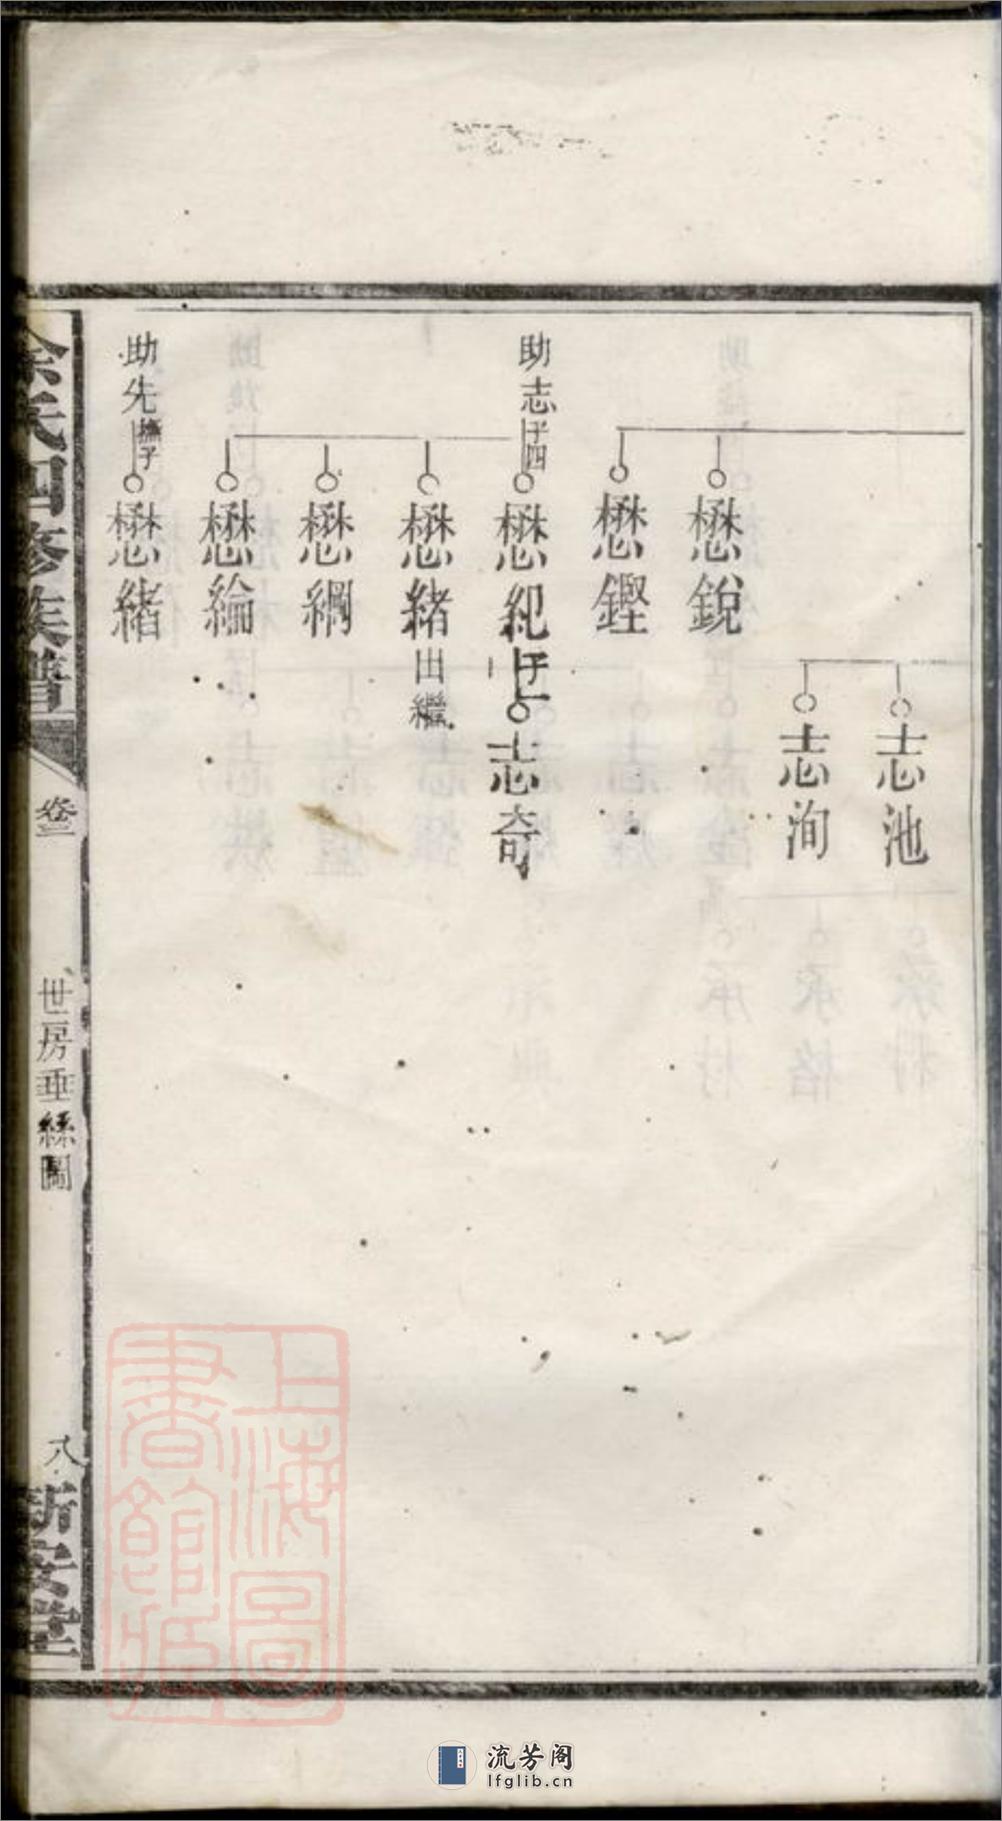 志池
志洵
懋銳
懋鏗
助志子四
懋紀子一
志奇
懋緒出繼
懋綱
懋綸
助先撫子
懋緒
余氏四修族譜
卷三
世房垂絲圖
八
新安堂
上海圖
書館藏
流芳阁
lfglib.cn